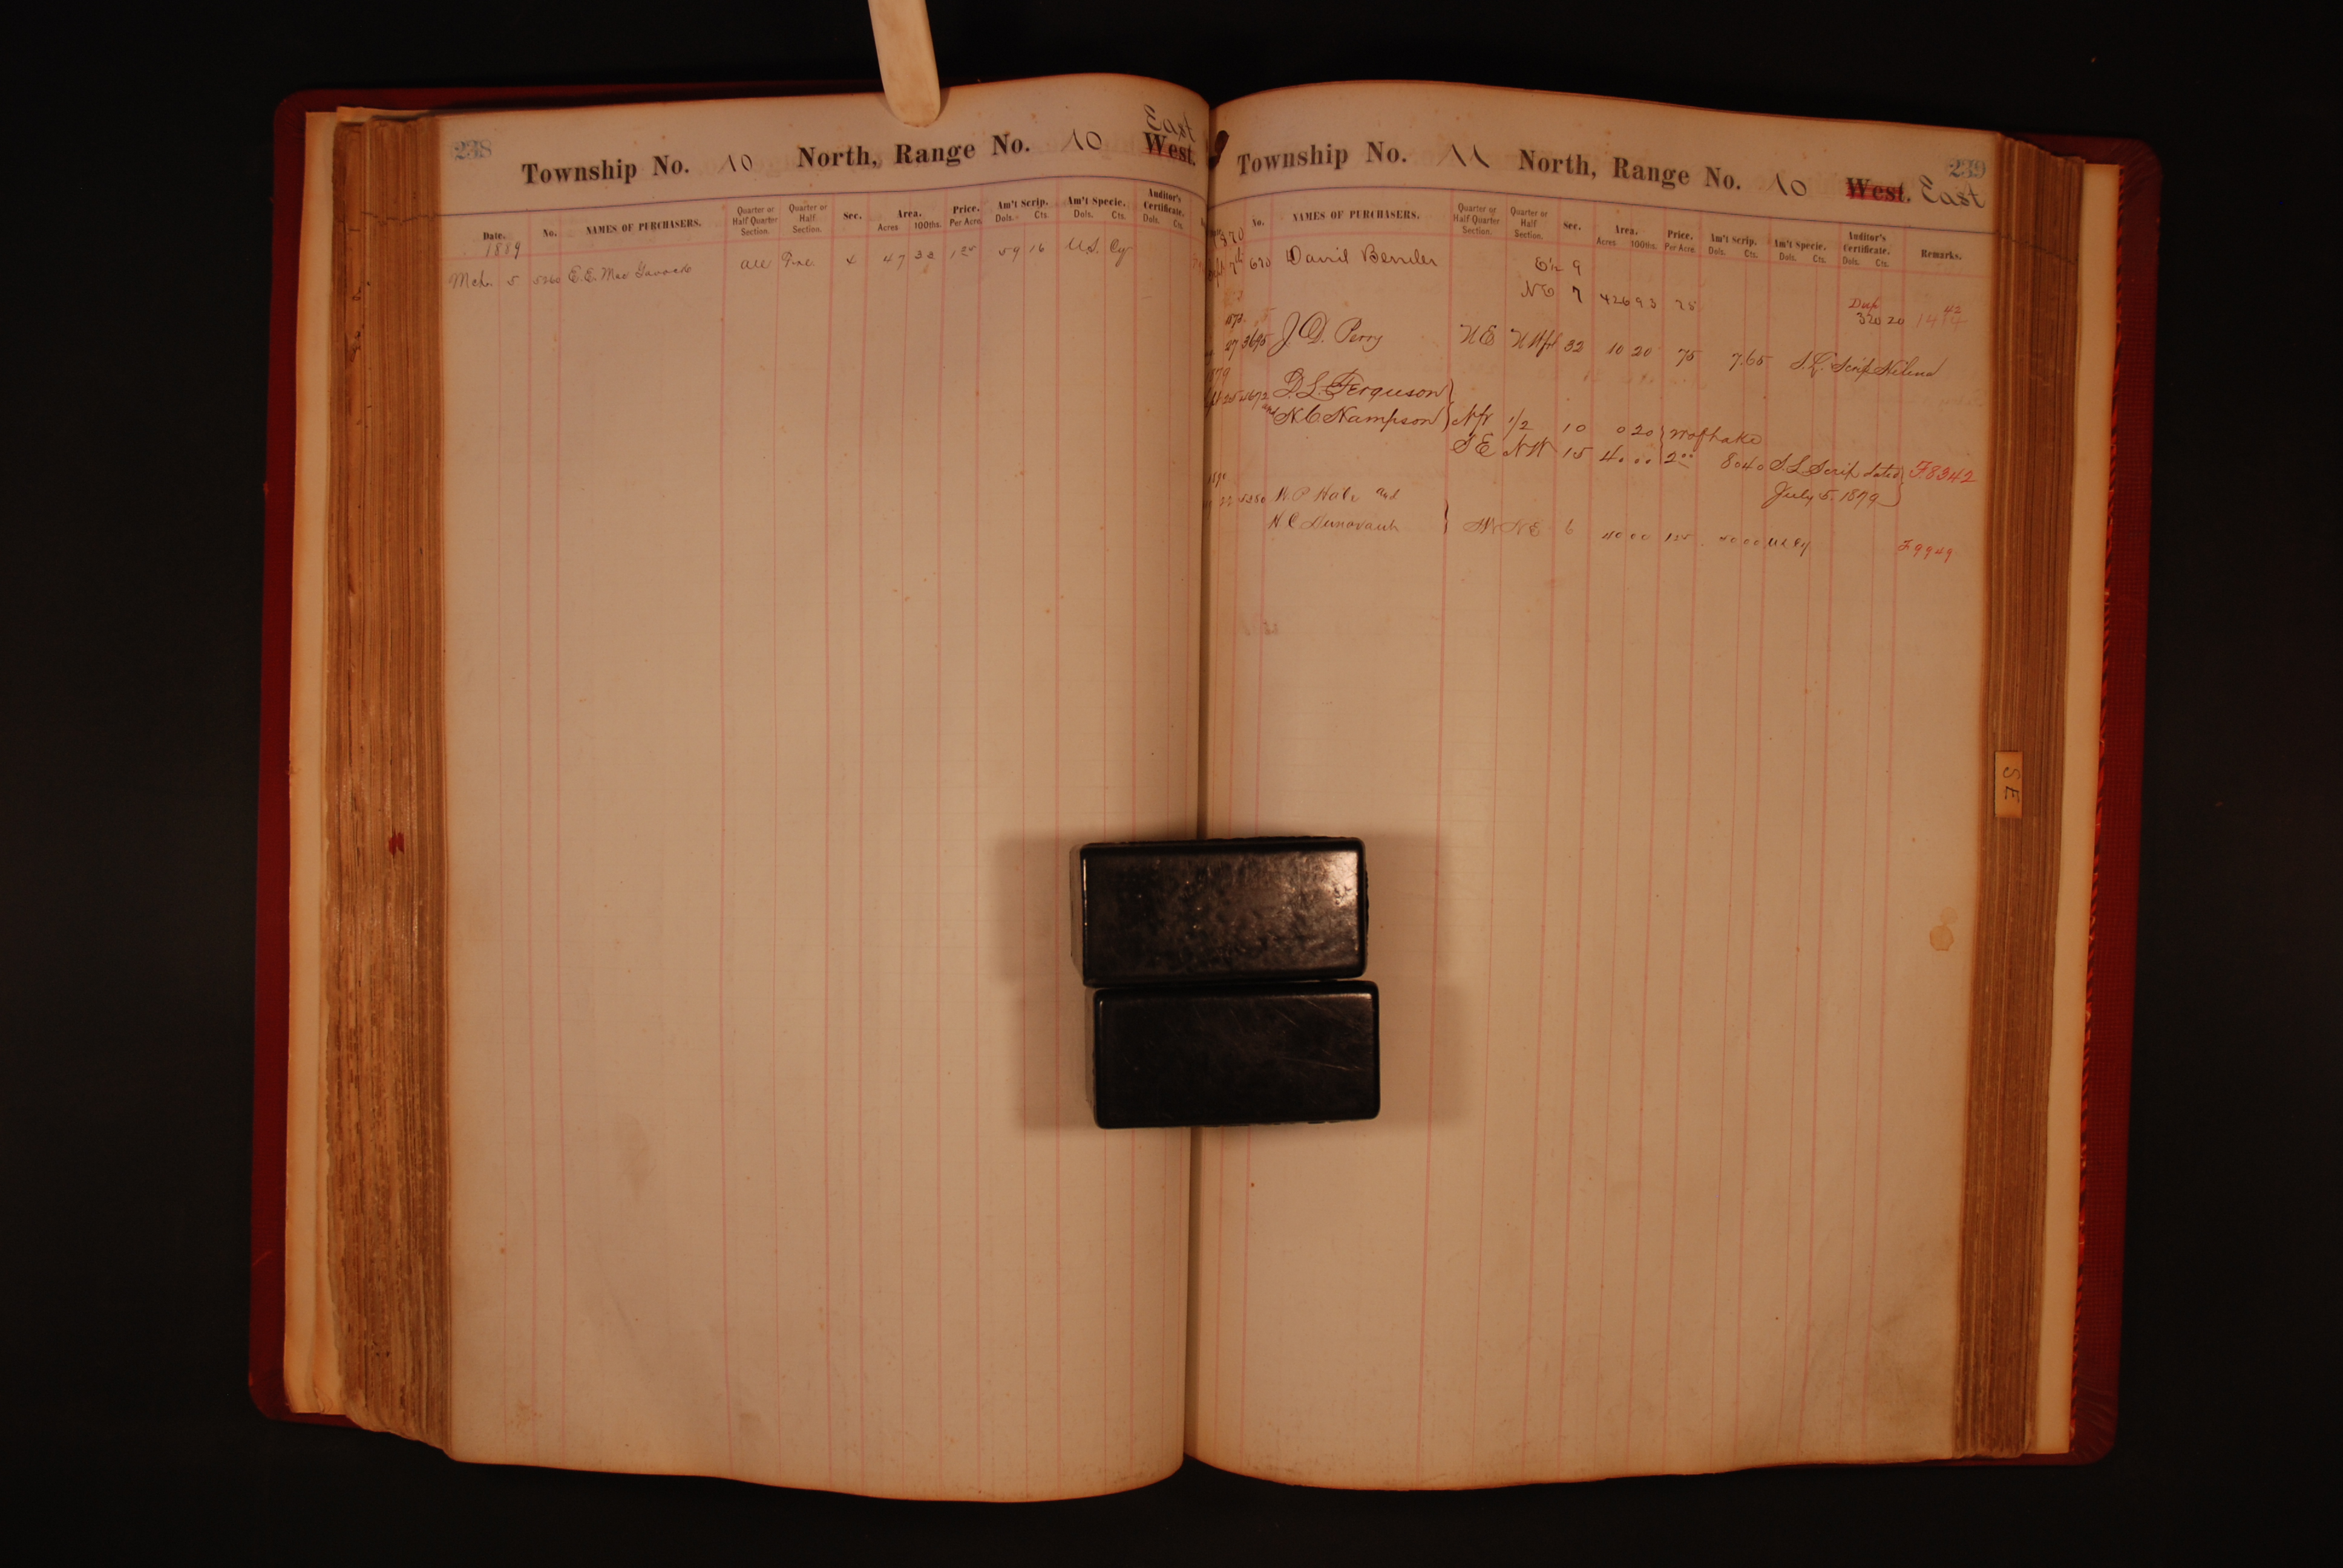 238
Township No. 10 North, Range No. 10 West. East
Date. No. NAMES OF PURCHASERS. Quarter or Half Quarter Section. Quarter or Half Section. Sec. Area. Acres 100ths. Price. Per Acre Am't Scrip. Dols. Cts. Am't Specie. Dols. Cts. Auditor's Certificate. Dols. Cts.
1889
Mch. 5 5260 E. E. Mac all Frc. 4 47 33 1 25 59 16 U.S. Cy
239
Township No. 11 North, Range No. 10 West. East
No. NAMES OF PURCHASERS. Quarter or Half Quarter Section. Quarter or Half Section. Sec. Area. Acres 100ths. Price. Per Acre. Am't Scrip. Dols. Cts. Am't Specie. Dols. Cts. Auditor's Certificate. Dols. Cts. Remarks.
1870
7th 620 Daniel Bender 9
NE 7 426 93 75 Dup 320 20
1873
27 3695 J. D. Perry NE 32 10 20 75 7.65 S.L. Scrip
1879
D. L. Ferguson
and H C Hampson N fr 1/2 10 0 20
SE NW 15 40 00 2 00 80 40 S.L Scrip dated F.8342
July 5. 1879
22 5380 and
SW NE 6 40 00 1 25 50 00 US Cy F 9949
SE